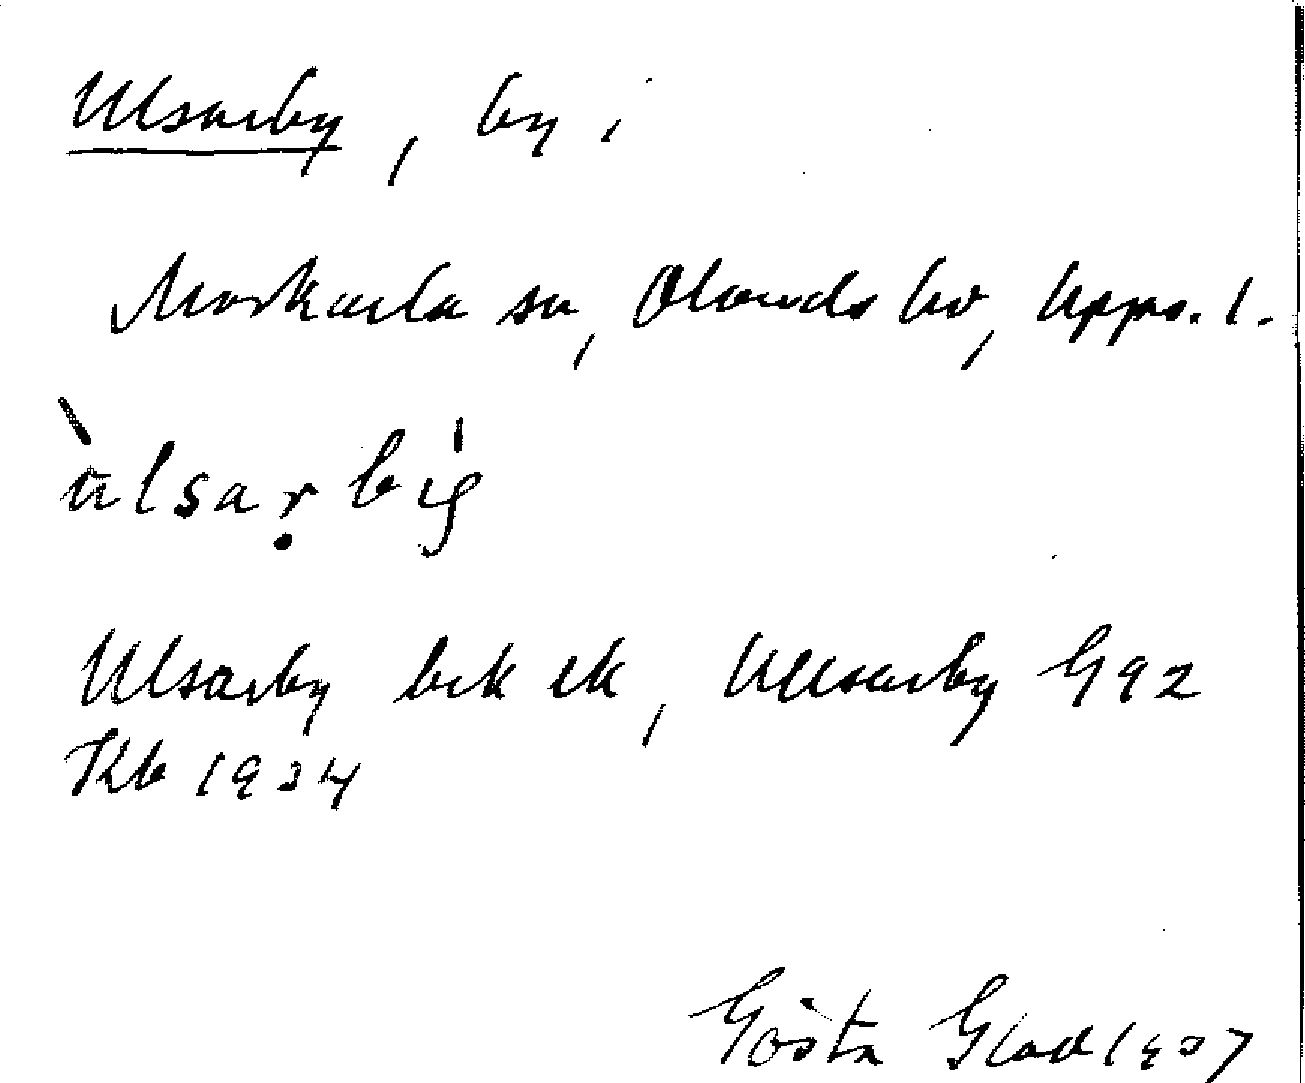 Ulsarby, by i
Morkarla sn, Olands hd, Upps. l.
ùlsarbig
Ulsarby bek ek, Ullsarby G92
Kb 1934
Gösta Glad 1937